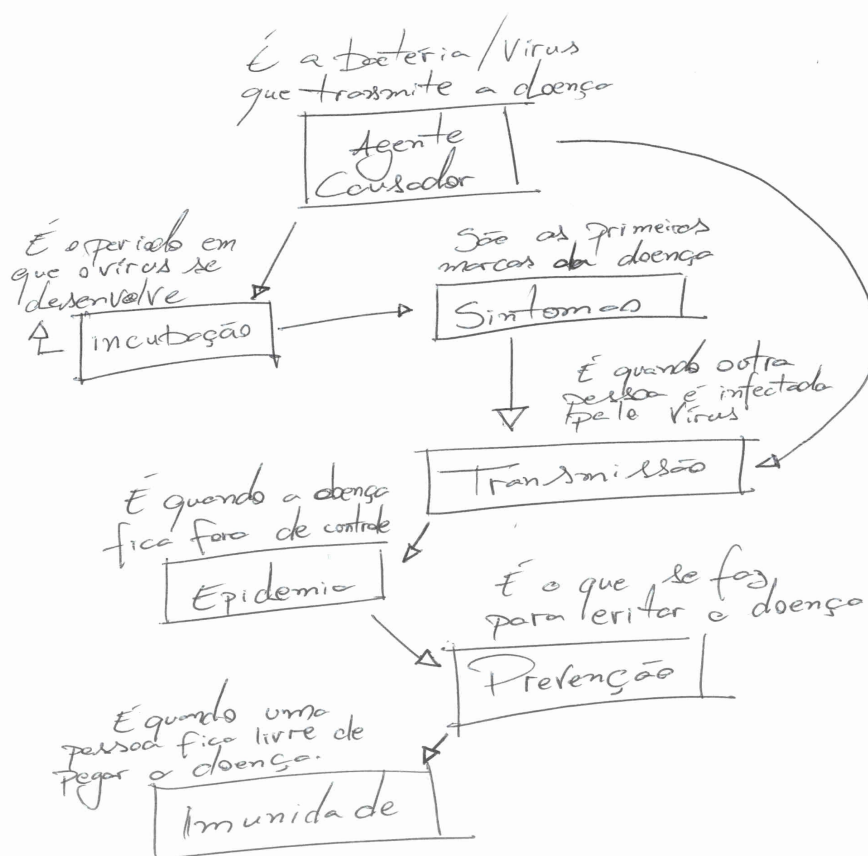 É a bactéria/Vírus
que transmite a doença
Agente
Causador
É o período em
que o vírus se
desenvolve
incubação
São as primeiras
marcas da doença
Sintomas
É quando outra
pessoa é infectada
pelo Vírus
Transmissão
É quando a doença
fica fora de controle
Epidemia
É o que se faz
para evitar a doença
Prevenção
É quando uma
pessoa fica livre de
pegar a doença.
Imunidade